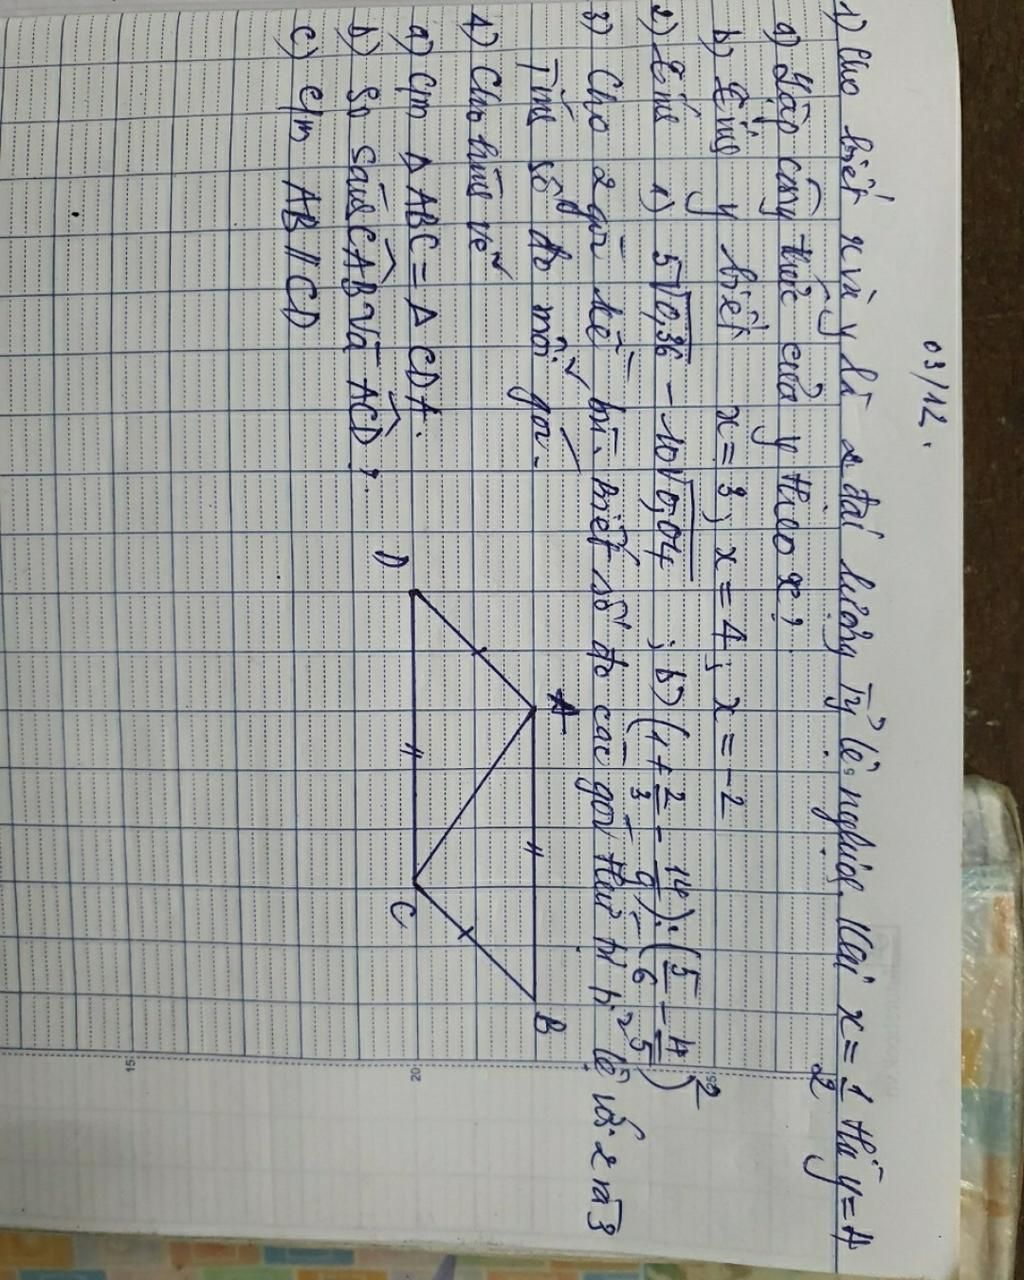 03/12.
1) Cho biết x và y là 2 đại lượng tỷ lệ nghịch. Khi x = 1/2 thì y = 4
a) Lập công thức của y theo x?
b) Tính y biết x = 3; x = 4; x = -2
2) Tính a) 5√0,36 - 10√0,04 ; b) (1 + 2/3 - 14/9) : (5/6 - 4/5)²
3) Cho 2 góc kề bù. Biết số đo các góc thứ tự tỉ lệ với 2 và 3
Tính số đo mỗi góc.
4) Cho hình vẽ
a) Cm Δ ABC = Δ CDA.
b) So sánh CAB và ACD?
c) c/m AB // CD
A
B
C
D
15
20
25